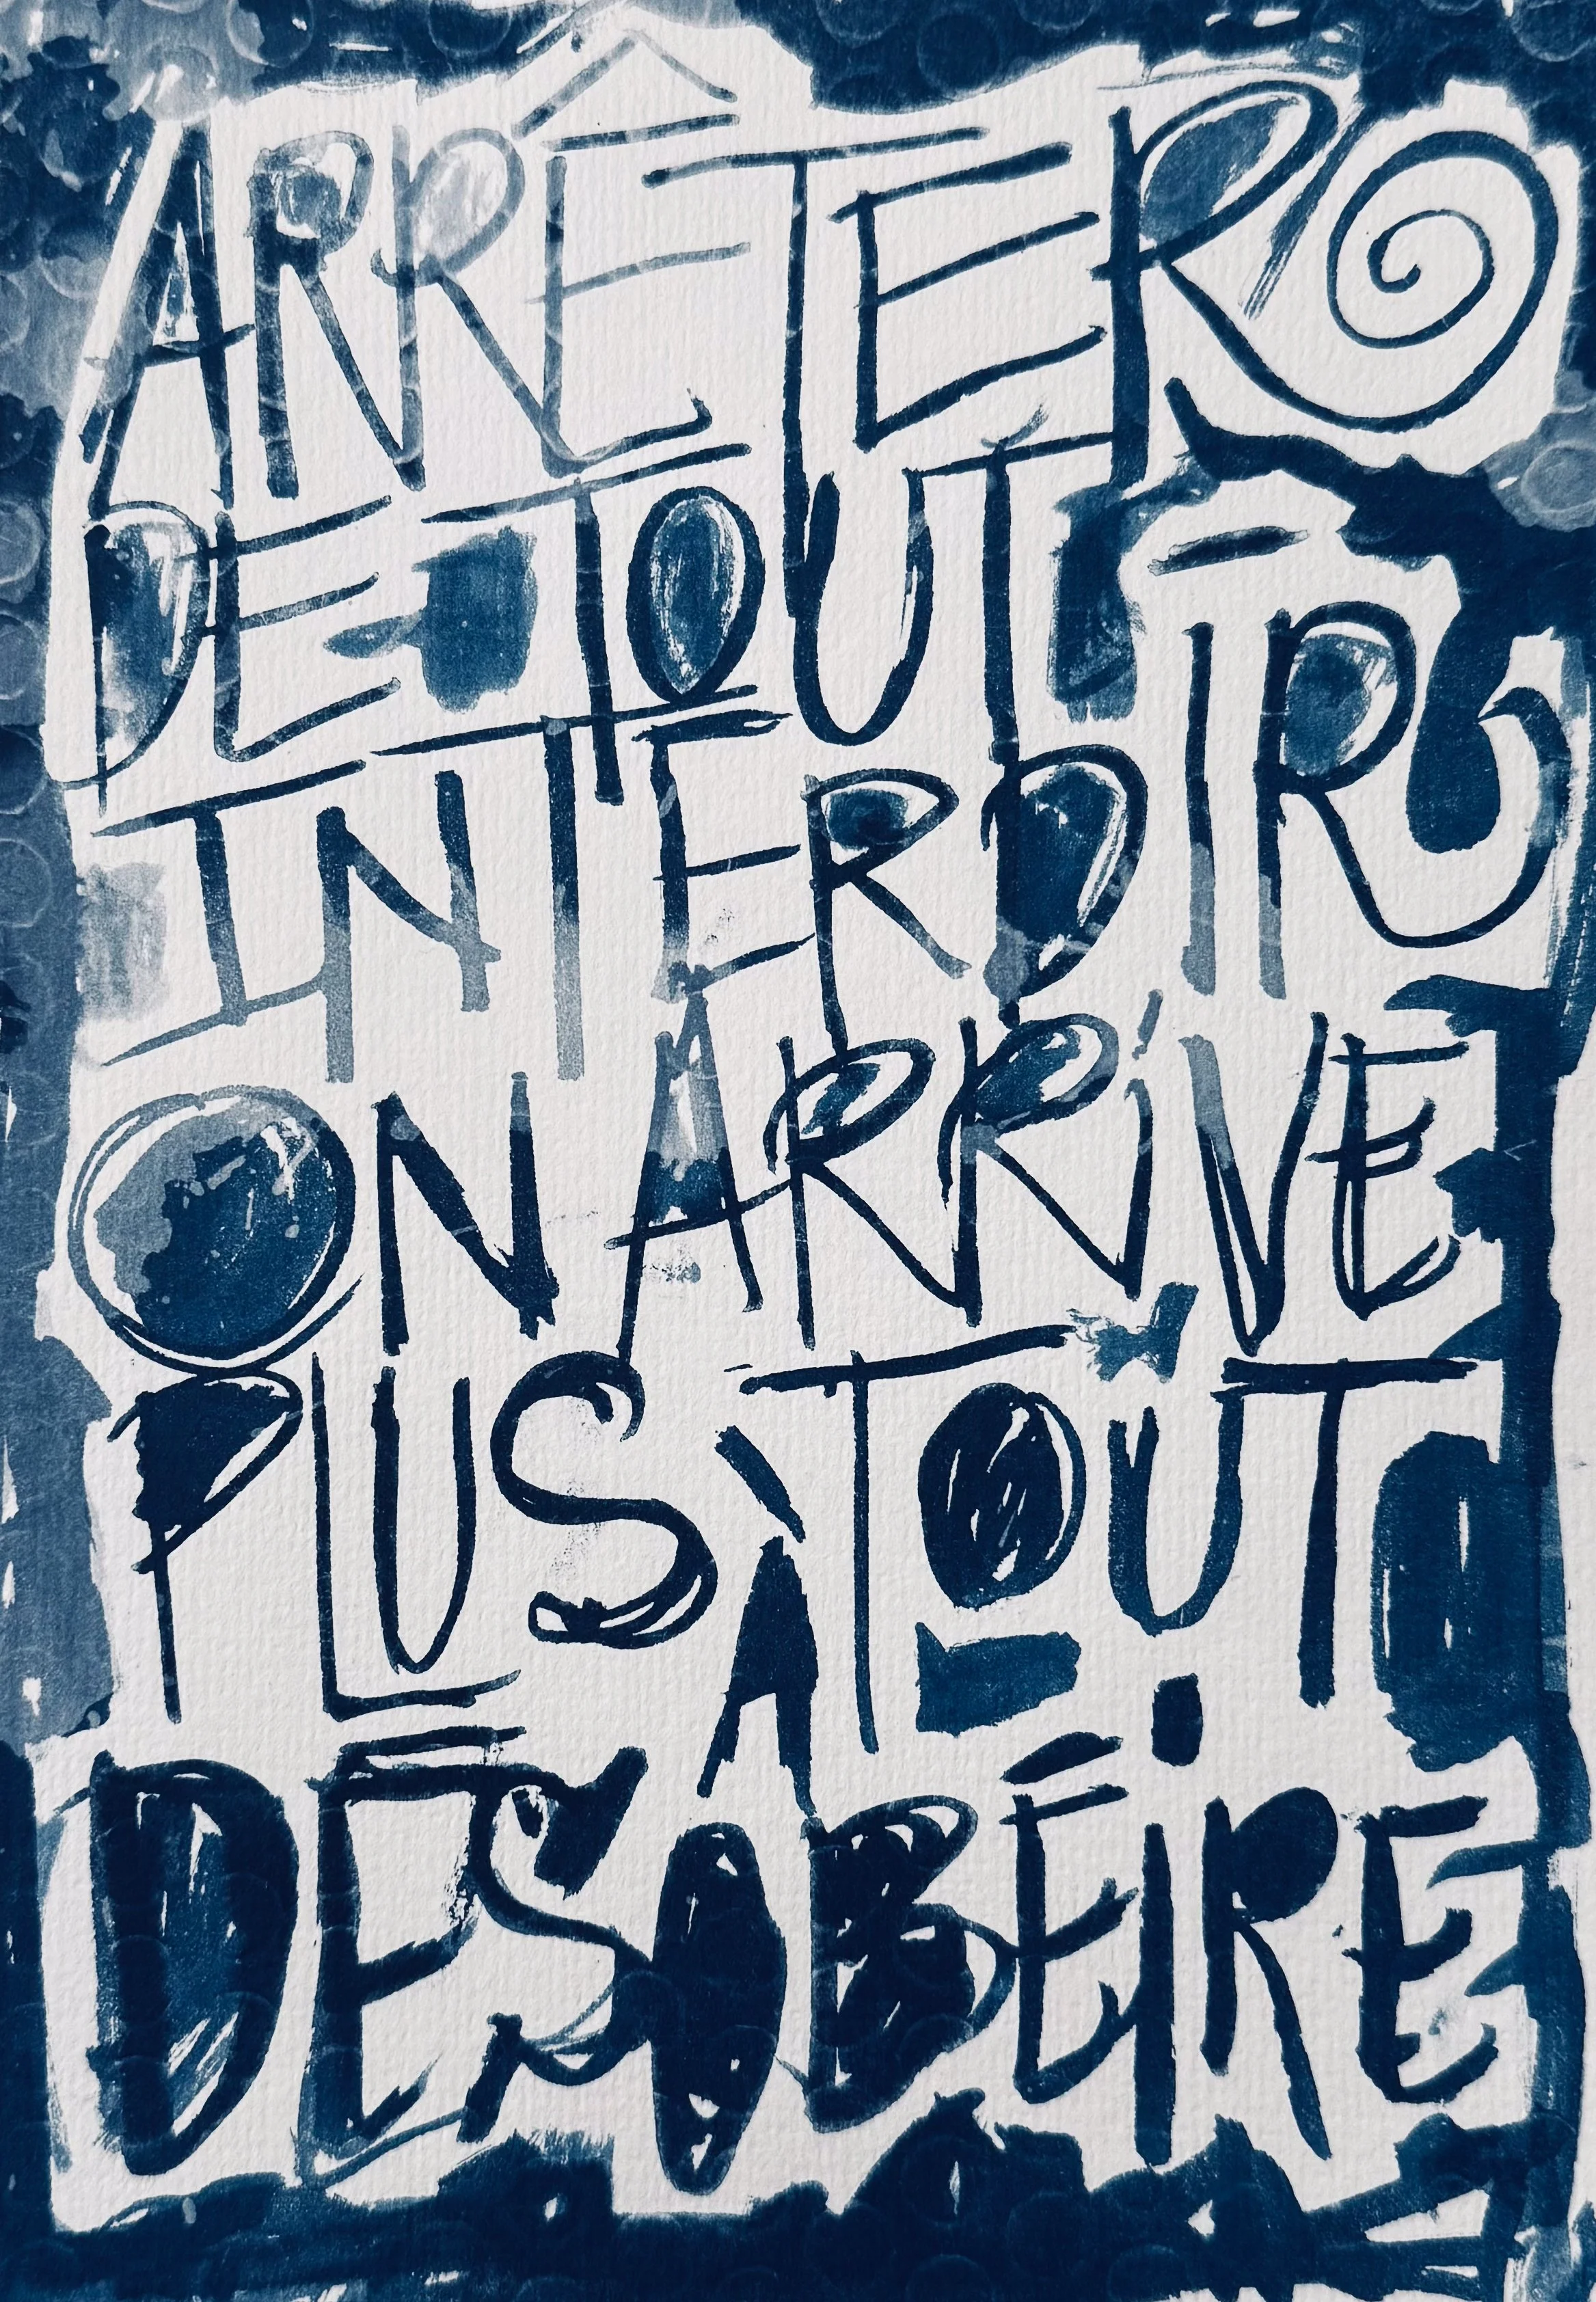 ARRÊTER
DE TOUT
INTERDIR
ON ARRIVE
PLUS À TOUT
DÉSOBÉIRE